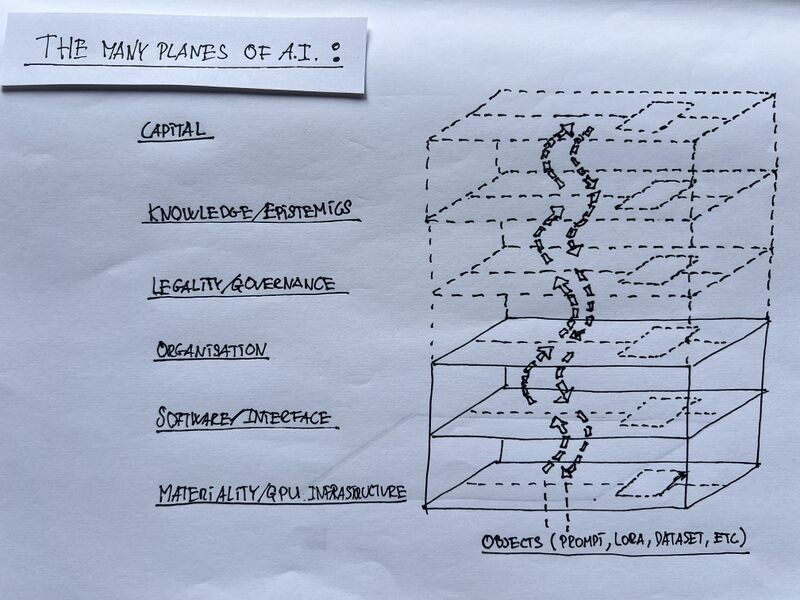 THE MANY PLANES OF A.I. :
CAPITAL
KNOWLEDGE/EPISTEMICS
LEGALITY/GOVERNANCE
ORGANISATION
SOFTWARE/INTERFACE
MATERIALITY/GPU INFRASTRUCTURE
OBJECTS (PROMPT, LORA, DATASET, ETC)